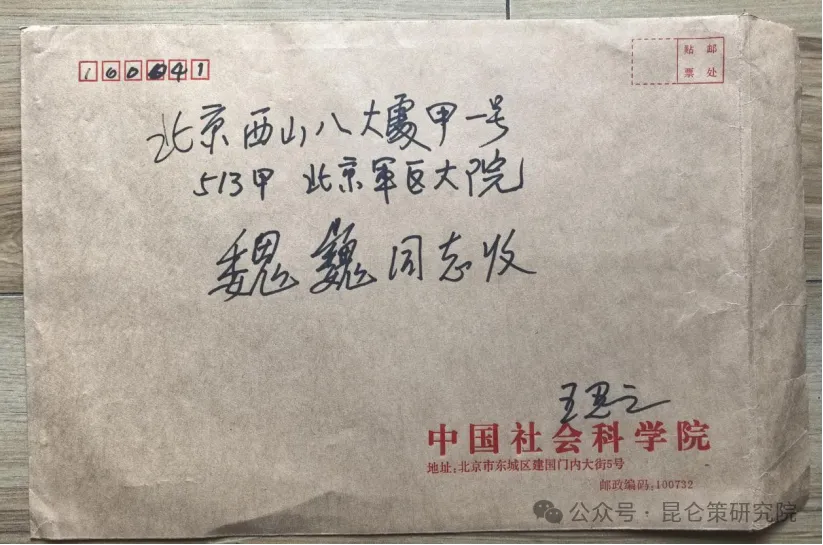 100041
贴 邮
票 处
北京西山八大處甲一号
513甲 北京軍区大院
魏巍同志收
王思之
中国社会科学院
地址:北京市东城区建国门内大街5号
邮政编码:100732
公众号·昆仑策研究院